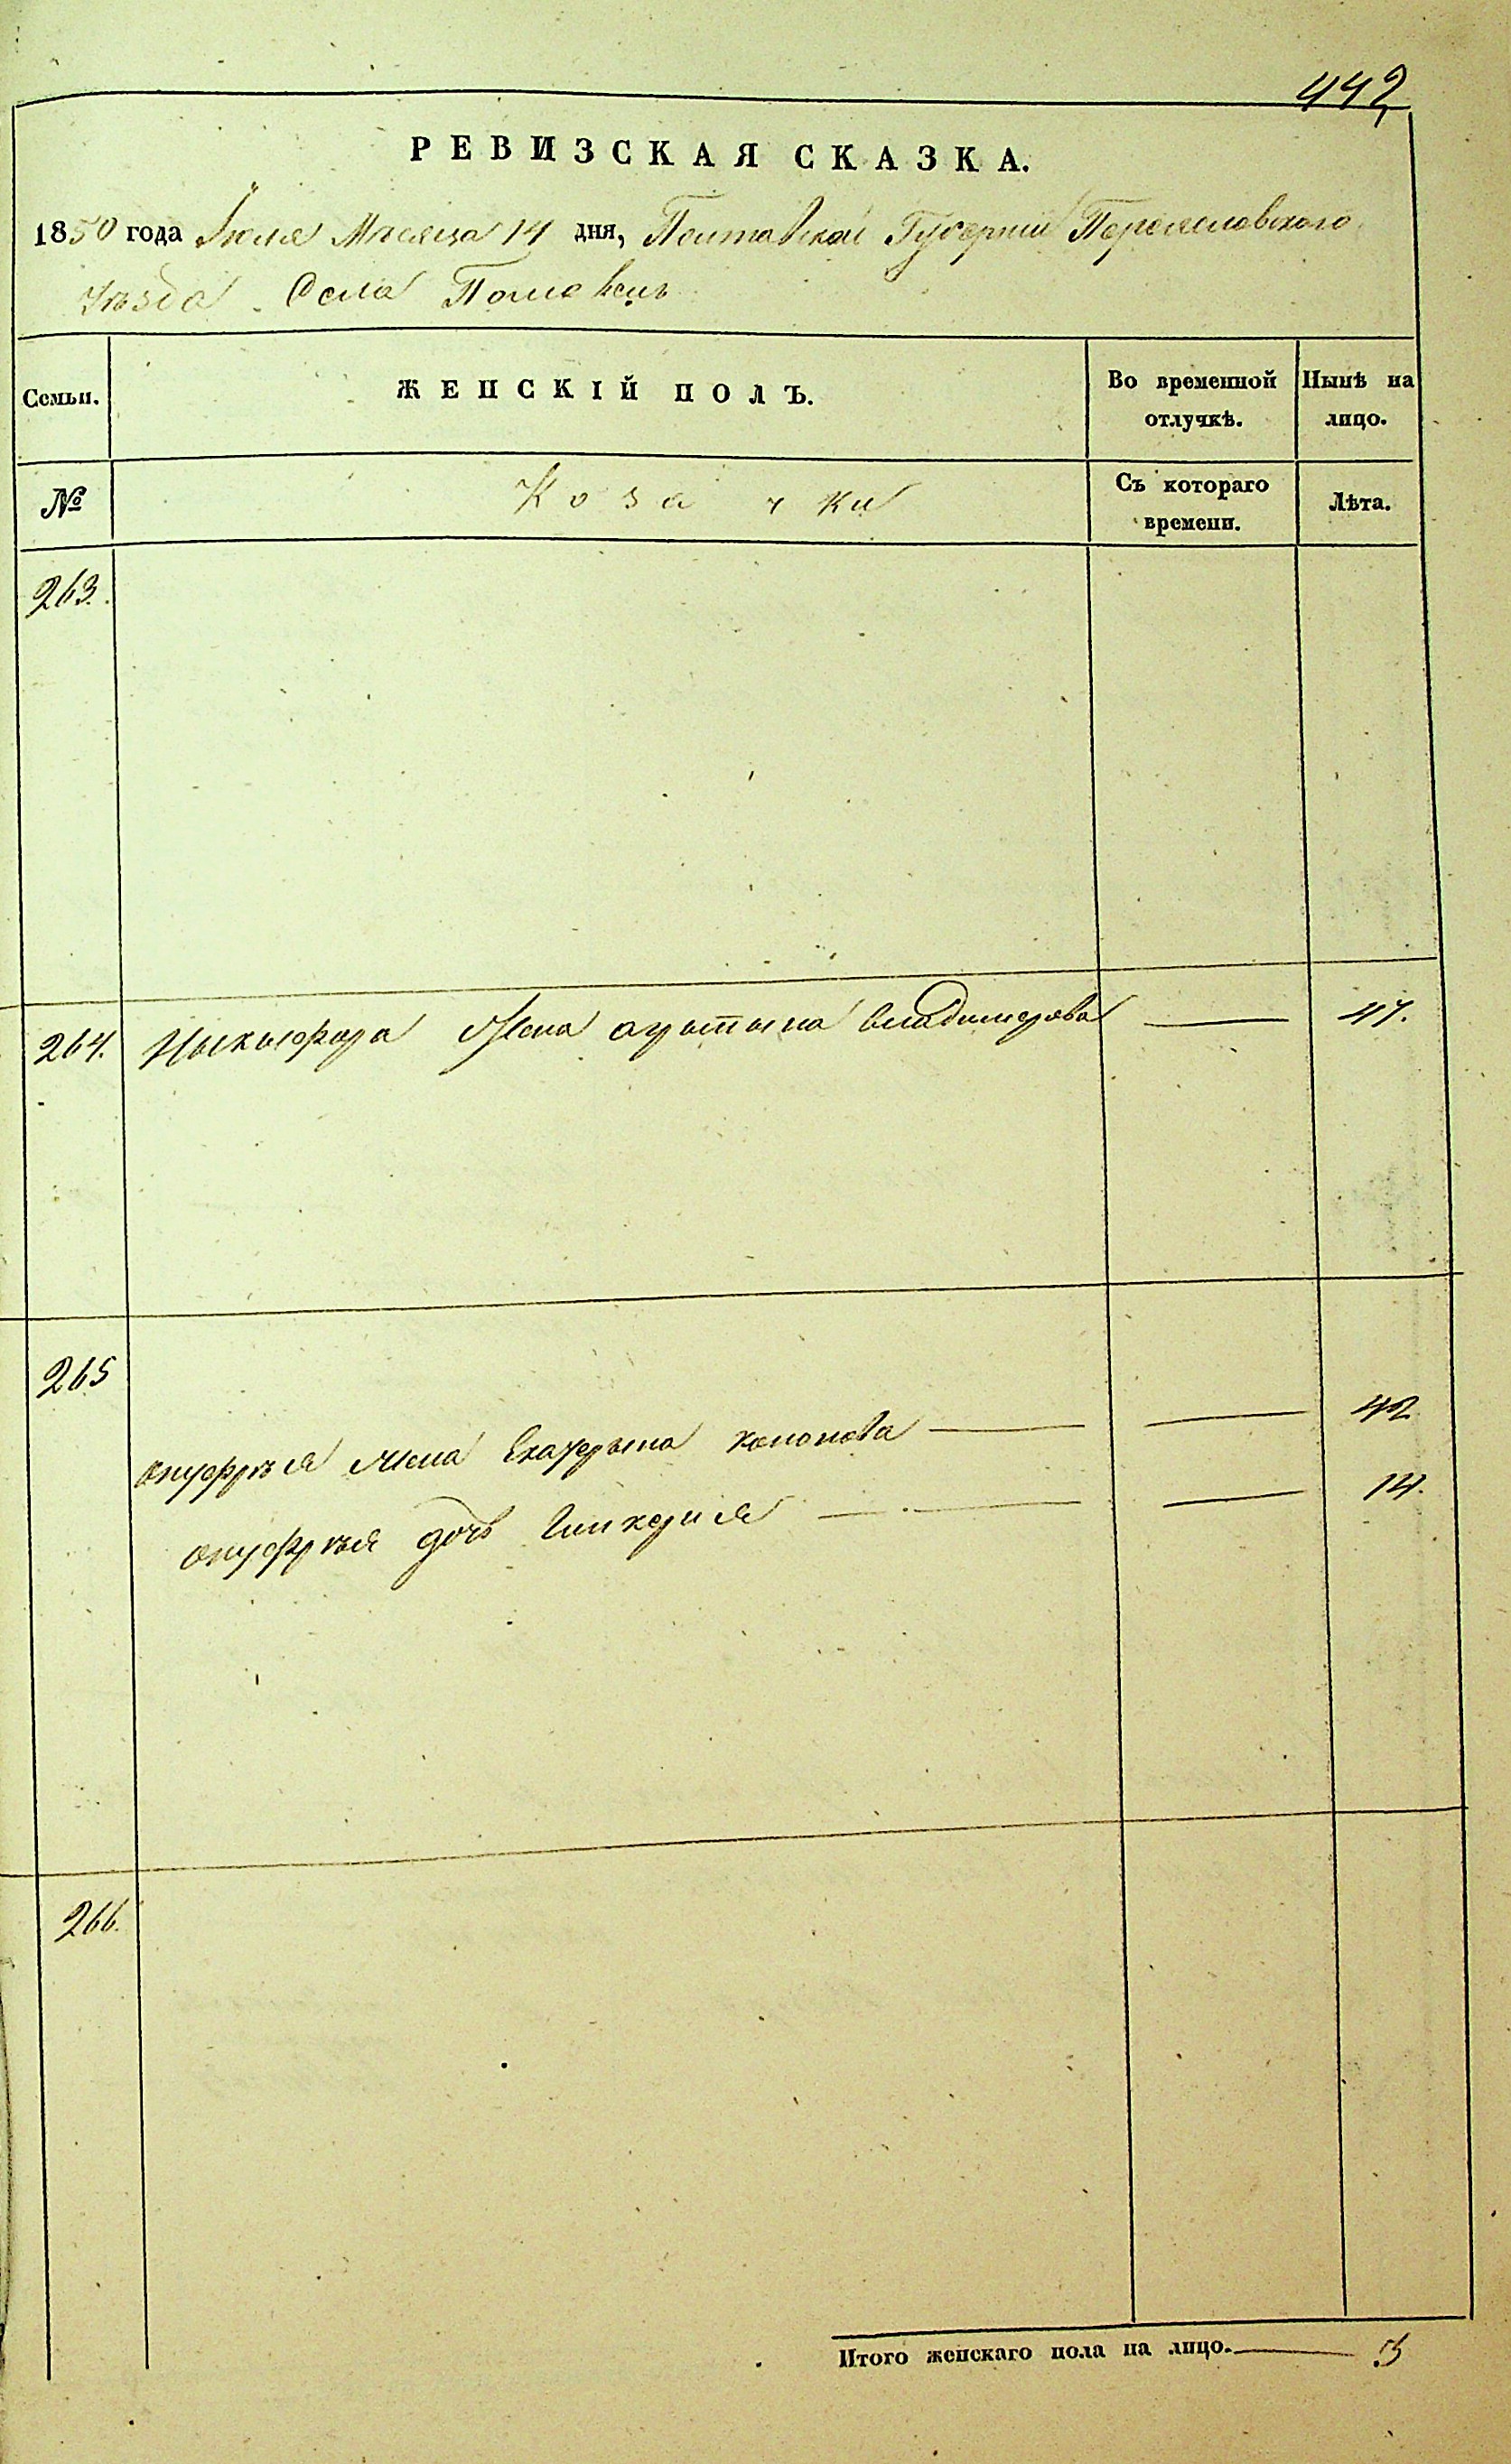 442
РЕВИЗСКАЯ СКАЗКА.
1850 года Июля Месяца 14 дня, Полтавской Губернии Переяславского
Уѣзда Села Помоклецъ
Семьи. ЖЕНСКІЙ ПОЛЪ. Во временной отлучкѣ. Нынѣ на лицо.
№ Козачки Съ котораго времени. Лѣта.
263.
264. Ныкыфора Жена Владимерова — 47.
265
Онуфрѣя Жена Екатерына Кононова — — 42
Онуфрѣя дочь Гликерия — — 14.
266.
Итого женскаго пола на лицо. — 3